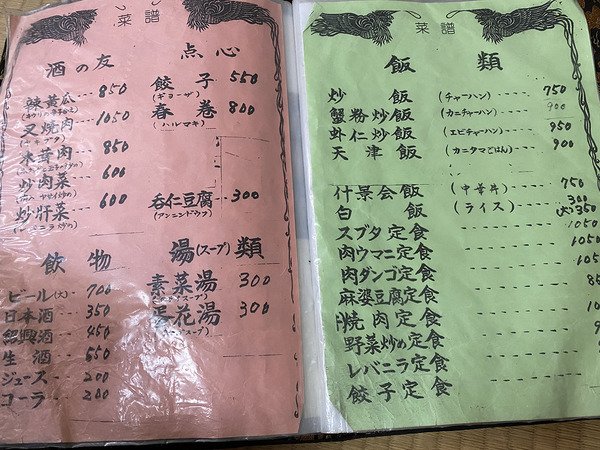 菜譜
酒の友
辣黄瓜 850
叉焼肉 1050
木茸肉 850
炒肉菜 600
炒肝菜 600
点心
餃子 550
(ギョーザ)
春巻 800
(ハルマキ)
呑仁豆腐 300
(アンニンドウフ)
飲物
ビール(大) 700
日本酒 350
紹興酒 450
生酒 550
ジュース 200
コーラ 200
湯(スープ)類
素菜湯 300
蛋花湯 300
菜譜
飯類
炒飯 (チャーハン) 750
蟹粉炒飯 (カニチャーハン) 900
虾仁炒飯 (エビチャーハン) 950
天津飯 (カニタマごはん) 900
什景会飯 (中華丼) 750
白飯 (ライス) 300
(大)350
スブタ定食 1050
肉ウマニ定食 1050
肉ダンゴ定食 105
麻婆豆腐定食
焼肉定食
野菜炒め定食
レバニラ定食
餃子定食